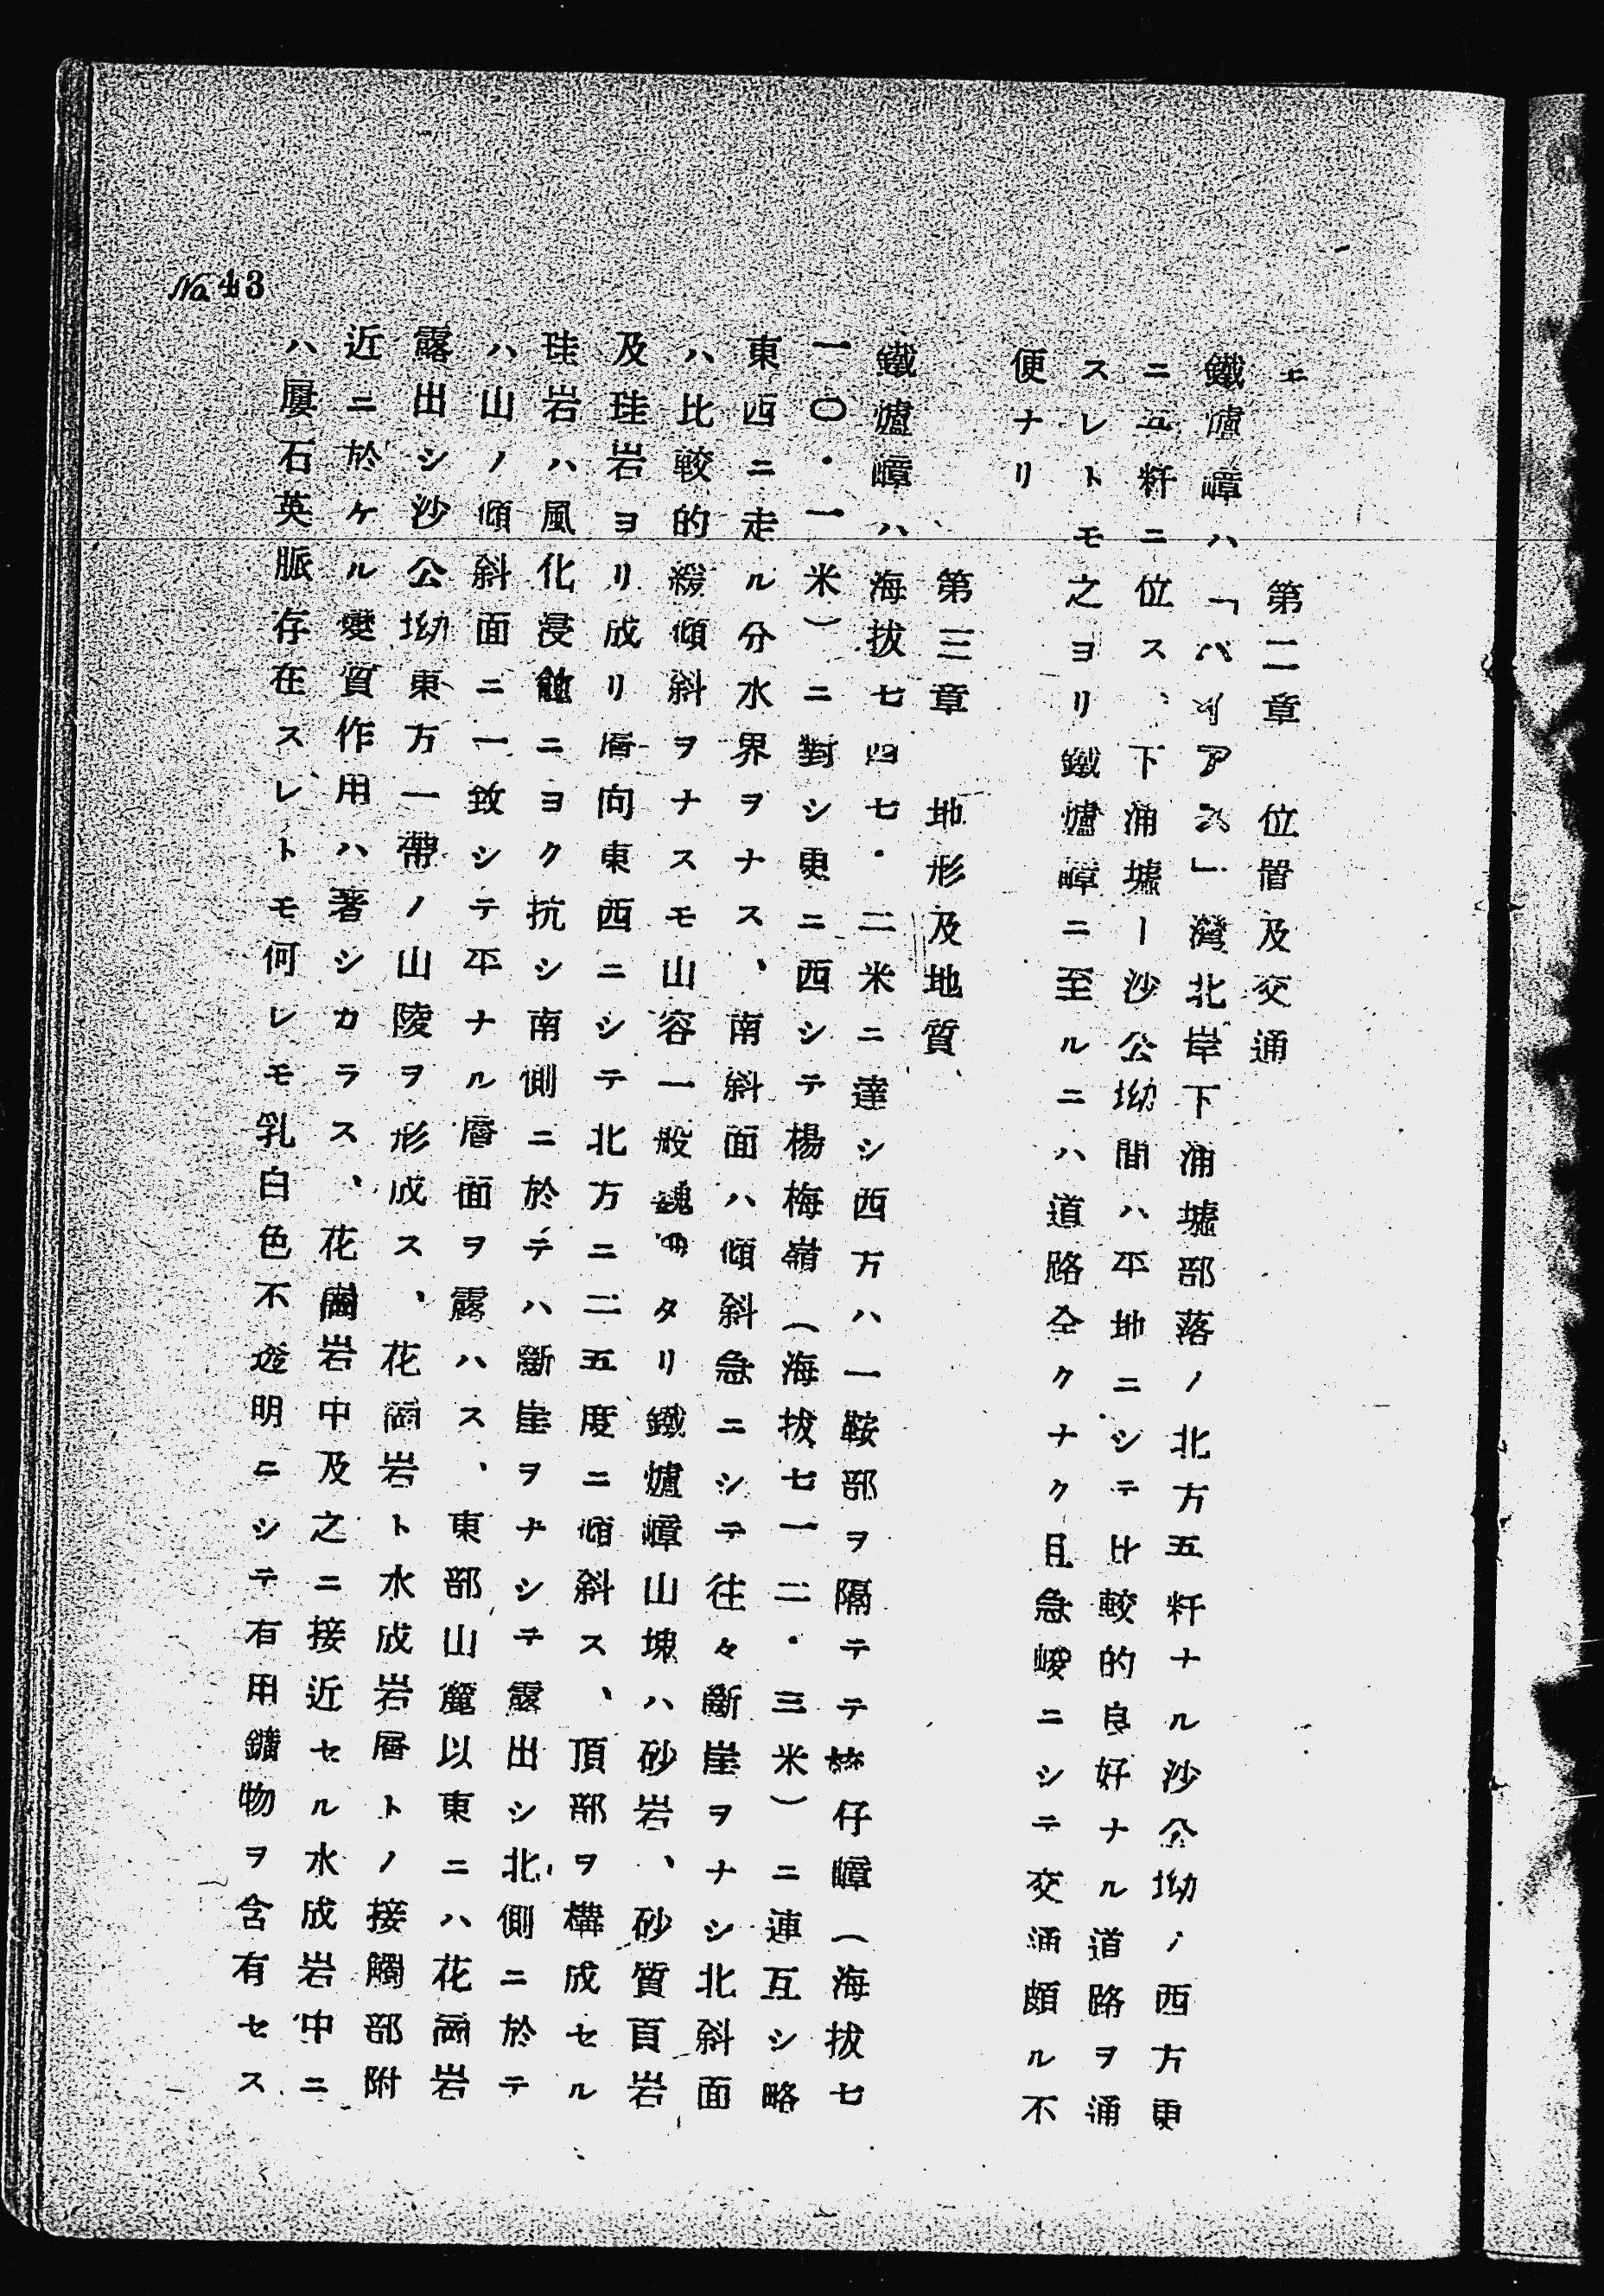 第二章　位置及交通
鐵爐嶂ハ「バイアス」灣北岸下涌墟部落ノ北方五粁ナル沙公坳ノ西方更
ニ五粁ニ位ス、下涌墟ー沙公坳間ハ平地ニシテ比較的良好ナル道路ヲ通
スレトモ之ヨリ鐵爐嶂ニ至ルニハ道路全クナク且急峻ニシテ交通頗ル不
便ナリ
第三章　地形及地質
鐵爐嶂ハ海拔七四七・二米ニ達シ西方ハ一鞍部ヲ隔テテ仔嶂（海拔七
一〇・一米）ニ對シ更ニ西シテ楊梅嶺（海拔七一二・三米）ニ連互シ略
東西ニ走ル分水界ヲナス、南斜面ハ傾斜急ニシテ往々斷崖ヲナシ北斜面
ハ比較的緩傾斜ヲナスモ山容一般タリ鐵爐嶂山塊ハ砂岩、砂質頁岩
及珪岩ヨリ成リ層向東西ニシテ北方ニ二五度ニ傾斜ス、頂部ヲ構成セル
珪岩ハ風化浸蝕ニヨク抗シ南側ニ於テハ斷崖ヲナシテ露出シ北側ニ於テ
ハ山ノ傾斜面ニ一致シテ平ナル層面ヲ露ハス、東部山麓以東ニハ花崗岩
露出シ沙公坳東方一帶ノ山陵ヲ形成ス、花崗岩ト水成岩層トノ接觸部附
近ニ於ケル變質作用ハ著シカラス、花崗岩中及之ニ接近セル水成岩中ニ
ハ屢石英脈存在スレトモ何レモ乳白色不透明ニシテ有用鑛物ヲ含有セス
No 43